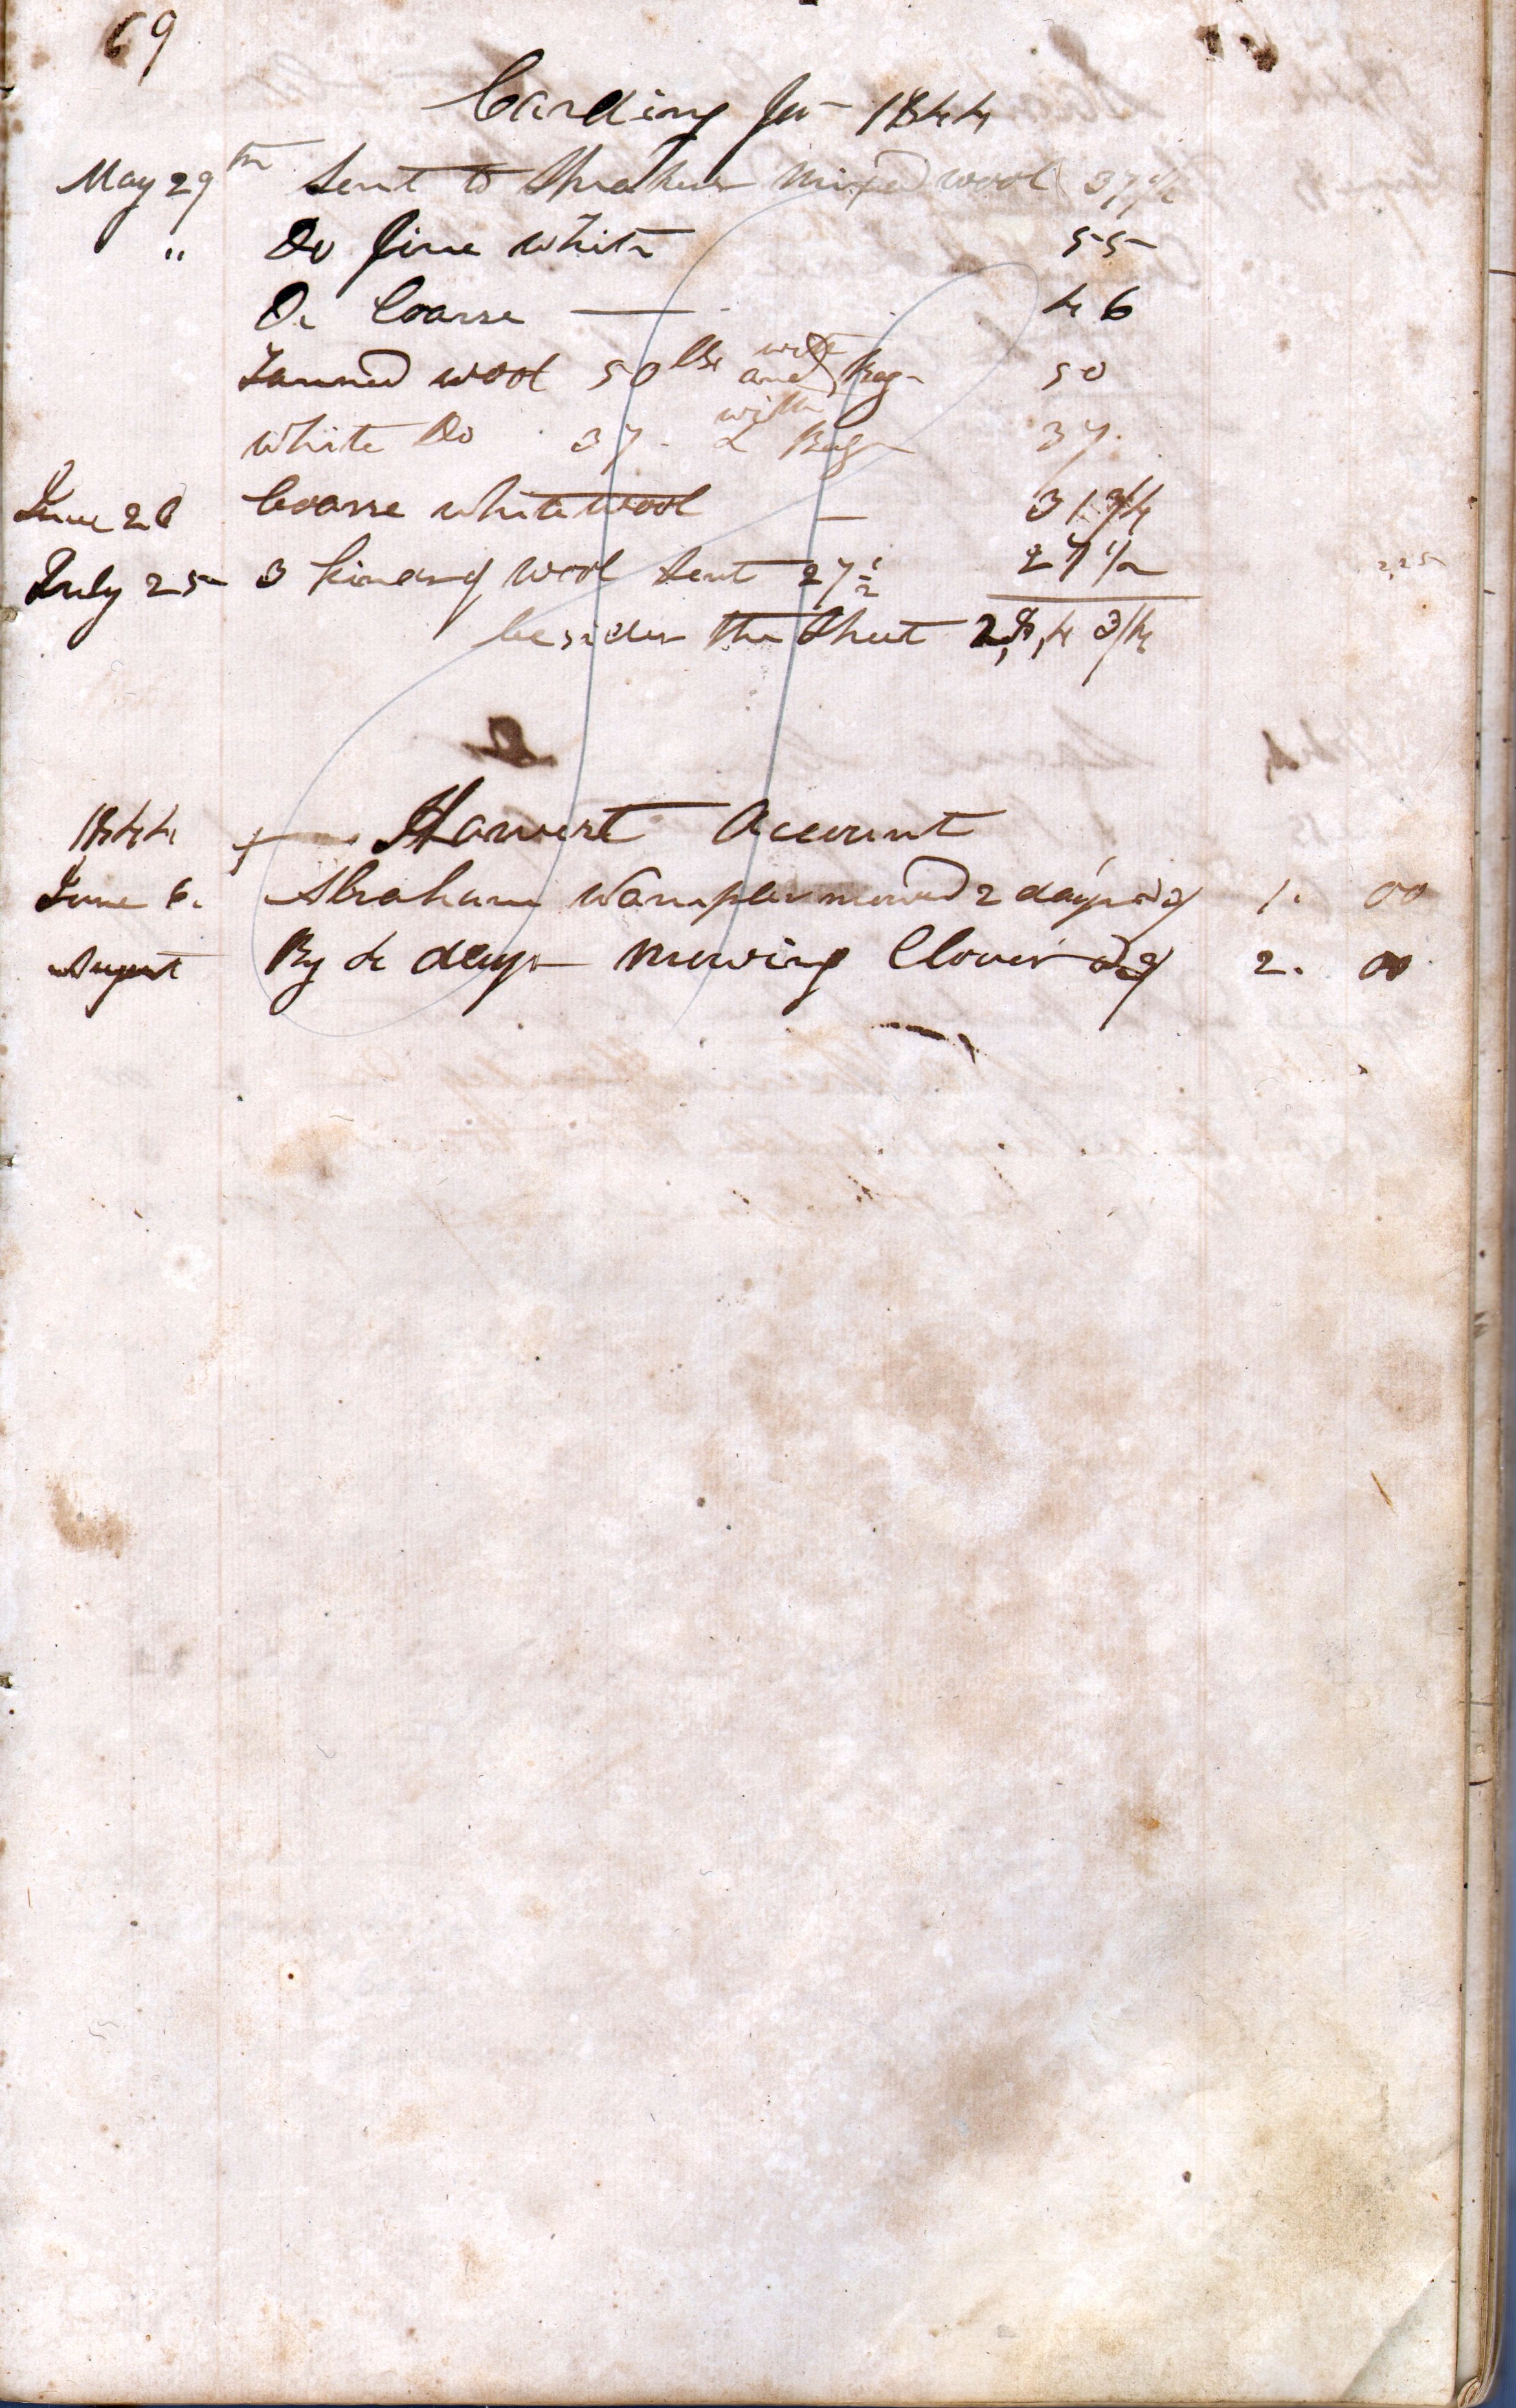 69
Carding for 1844
May 29th Sent to Shraders mixed wool 37 1/2
" Do fine white 55
Do Coarse — 46
Tanned wool 50 lbs and with bag 50
white Do 37. with Bag 37.
June 26 Coarse white wool — 31 3/4
July 25 3 kinds of wool sent 27 1/2 27 1/2
besides the Sheet 2,8,4 3/4
1844 Harvest Account
June 6. Abraham Wampler mowed 2 days 1. 00
August By 4 days mowing Clover 2. 00